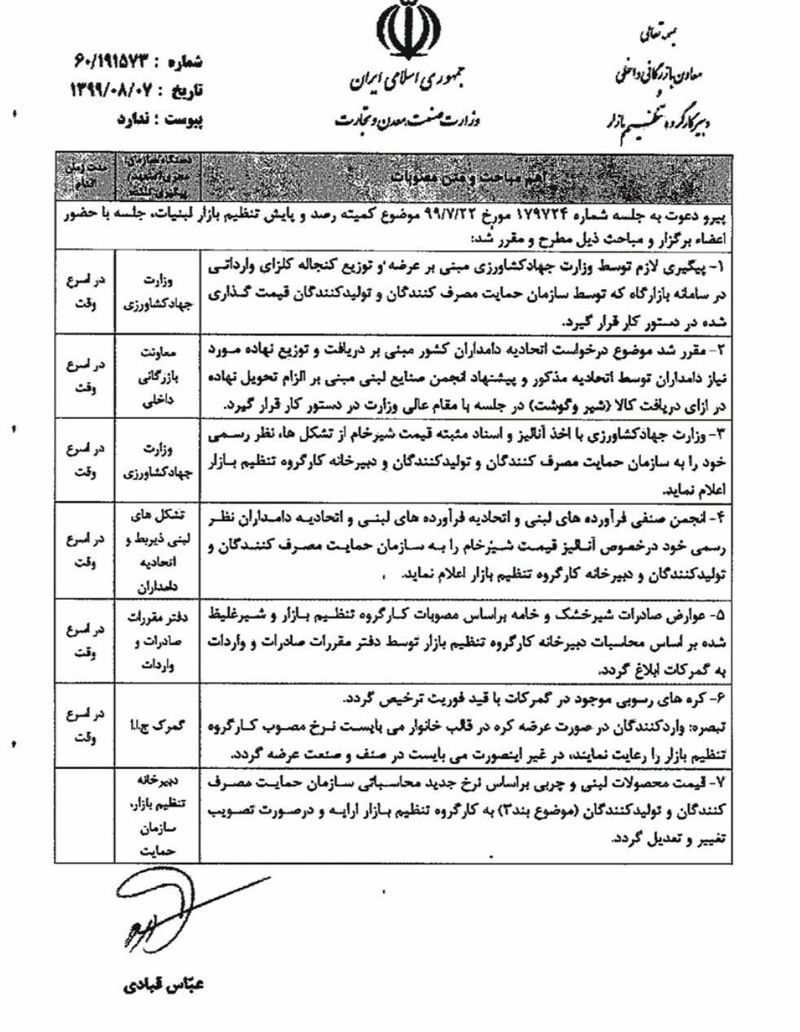 بسمه تعالی
معاون بازرگانی داخلی
و
دبیر کارگروه تنظیم بازار
جمهوری اسلامی ایران
وزارت صنعت، معدن و تجارت
شماره : ۶۰/۱۹۱۵۷۳
تاریخ : ۱۳۹۹/۰۸/۰۷
پیوست : ندارد
اهم مباحث و متن مصوبات
دستگاه/سازمان/
مجری(متعهد)
پیگیری کننده
مدت زمان
اقدام
پیرو دعوت به جلسه شماره ۱۷۹۷۲۴ مورخ ۹۹/۷/۲۲ موضوع کمیته رصد و پایش تنظیم بازار لبنیات، جلسه با حضور
اعضاء برگزار و مباحث ذیل مطرح و مقرر شد:
۱- پیگیری لازم توسط وزارت جهادکشاورزی مبنی بر عرضه و توزیع کنجاله کلزای وارداتی
در سامانه بازارگاه که توسط سازمان حمایت مصرف کنندگان و تولیدکنندگان قیمت گذاری
شده در دستور کار قرار گیرد.
وزارت
جهادکشاورزی
در اسرع
وقت
۲- مقرر شد موضوع درخواست اتحادیه دامداران کشور مبنی بر دریافت و توزیع نهاده مورد
نیاز دامداران توسط اتحادیه مذکور و پیشنهاد انجمن صنایع لبنی مبنی بر الزام تحویل نهاده
در ازای دریافت کالا (شیر وگوشت) در جلسه با مقام عالی وزارت در دستور کار قرار گیرد.
معاونت
بازرگانی
داخلی
در اسرع
وقت
۳- وزارت جهادکشاورزی با اخذ آنالیز و اسناد مثبته قیمت شیرخام از تشکل ها، نظر رسمی
خود را به سازمان حمایت مصرف کنندگان و تولیدکنندگان و دبیرخانه کارگروه تنظیم بازار
اعلام نماید.
وزارت
جهادکشاورزی
در اسرع
وقت
۴- انجمن صنفی فرآورده های لبنی و اتحادیه فرآورده های لبنی و اتحادیه دامداران نظر
رسمی خود درخصوص آنالیز قیمت شیرخام را به سازمان حمایت مصرف کنندگان و
تولیدکنندگان و دبیرخانه کارگروه تنظیم بازار اعلام نماید.
تشکل های
لبنی ذیربط و
اتحادیه
دامداران
در اسرع
وقت
۵- عوارض صادرات شیرخشک و خامه براساس مصوبات کارگروه تنظیم بازار و شیرغلیظ
شده بر اساس محاسبات دبیرخانه کارگروه تنظیم بازار توسط دفتر مقررات صادرات و واردات
به گمرکات ابلاغ گردد.
دفتر مقررات
صادرات و
واردات
در اسرع
وقت
۶- کره های رسوبی موجود در گمرکات با قید فوریت ترخیص گردد.
تبصره: واردکنندگان در صورت عرضه کره در قالب خانوار می بایست نرخ مصوب کارگروه
تنظیم بازار را رعایت نمایند، در غیر اینصورت می بایست در صنف و صنعت عرضه گردد.
گمرک ج.ا.ا
در اسرع
وقت
۷- قیمت محصولات لبنی و چربی براساس نرخ جدید محاسباتی سازمان حمایت مصرف
کنندگان و تولیدکنندگان (موضوع بند۳) به کارگروه تنظیم بازار ارایه و درصورت تصویب
تغییر و تعدیل گردد.
دبیرخانه
تنظیم بازار،
سازمان
حمایت
عباس قبادی